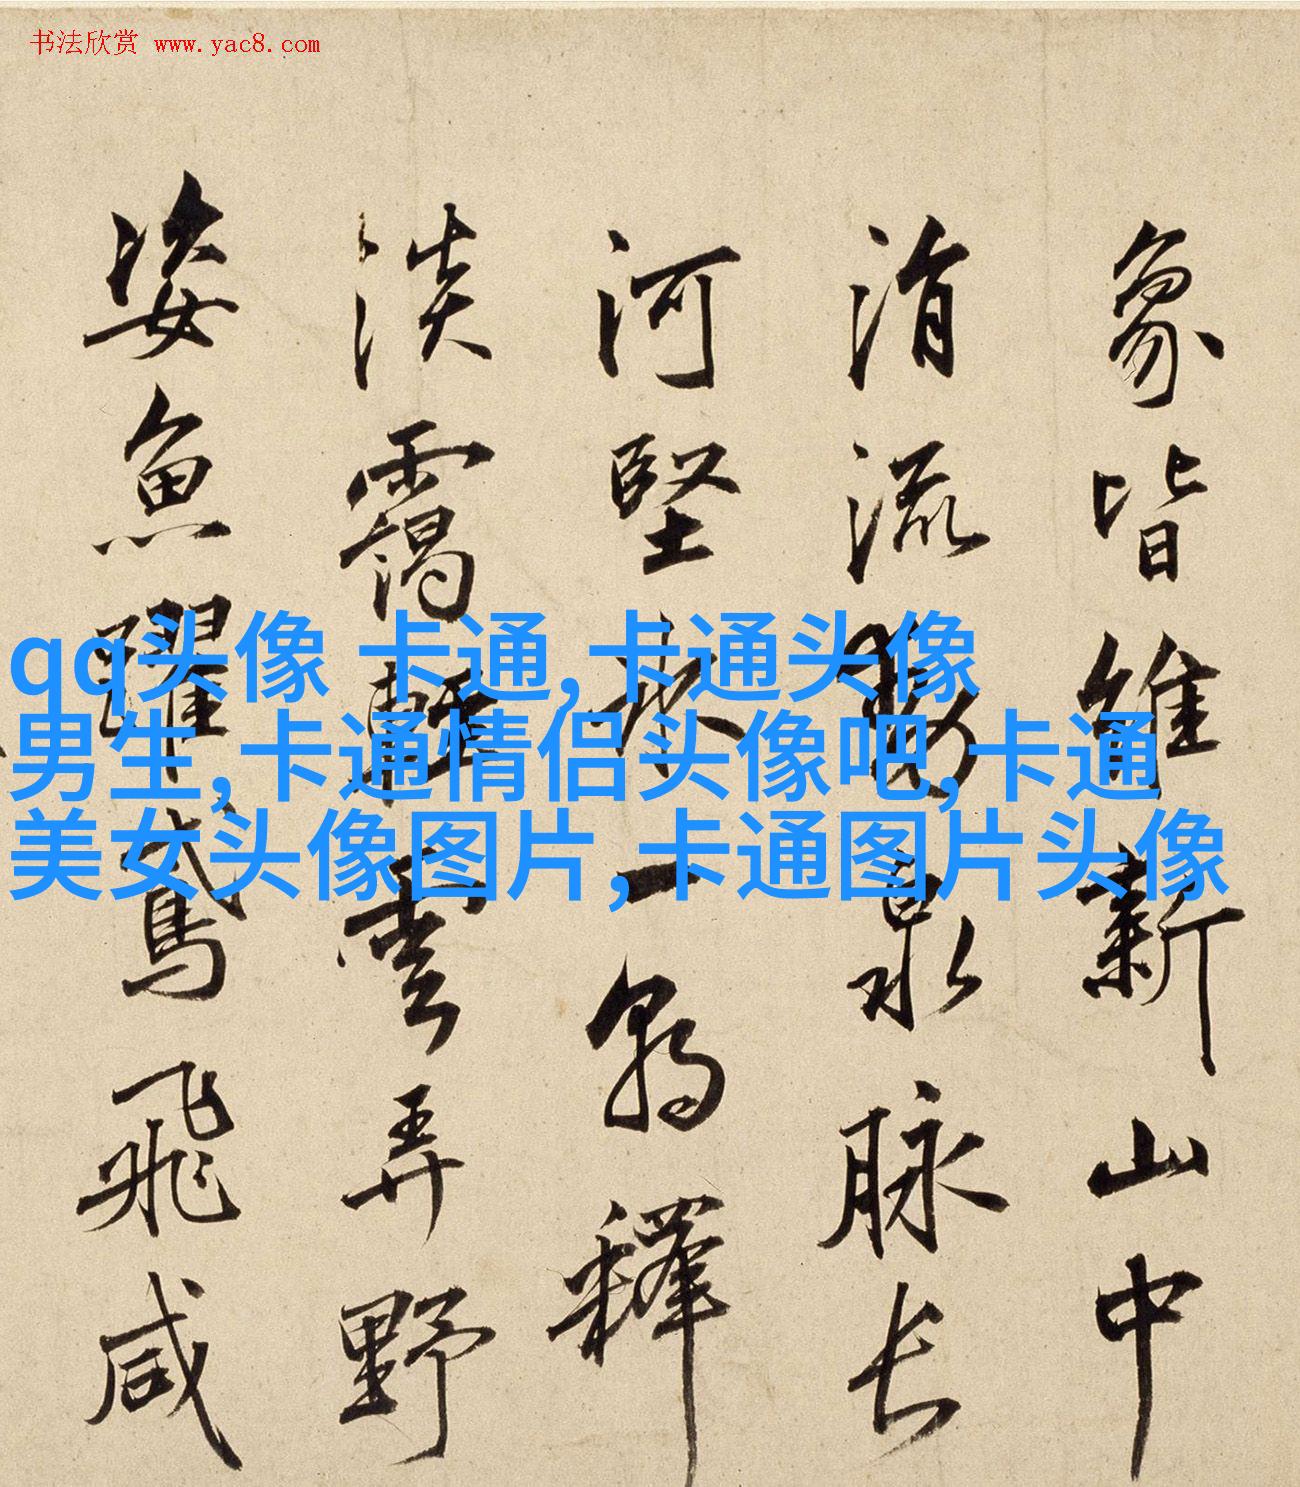 书法欣赏 www.yac8.com
qq头像 卡通,卡通头像
男生,卡通情侣头像吧,卡通
美女头像图片,卡通图片头像
象皆維新山中
涓流泉脉长
河堅冰一朝釋
淡靄輕雲弄野
姿魚躍鳶飛咸